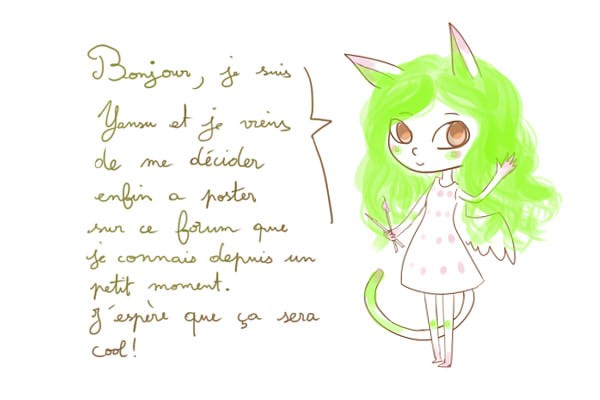 Bonjour, je suis
Yansu et je viens
de me décider
enfin a poster
sur ce forum que
je connais depuis un
petit moment.
J'espère que ça sera
cool!